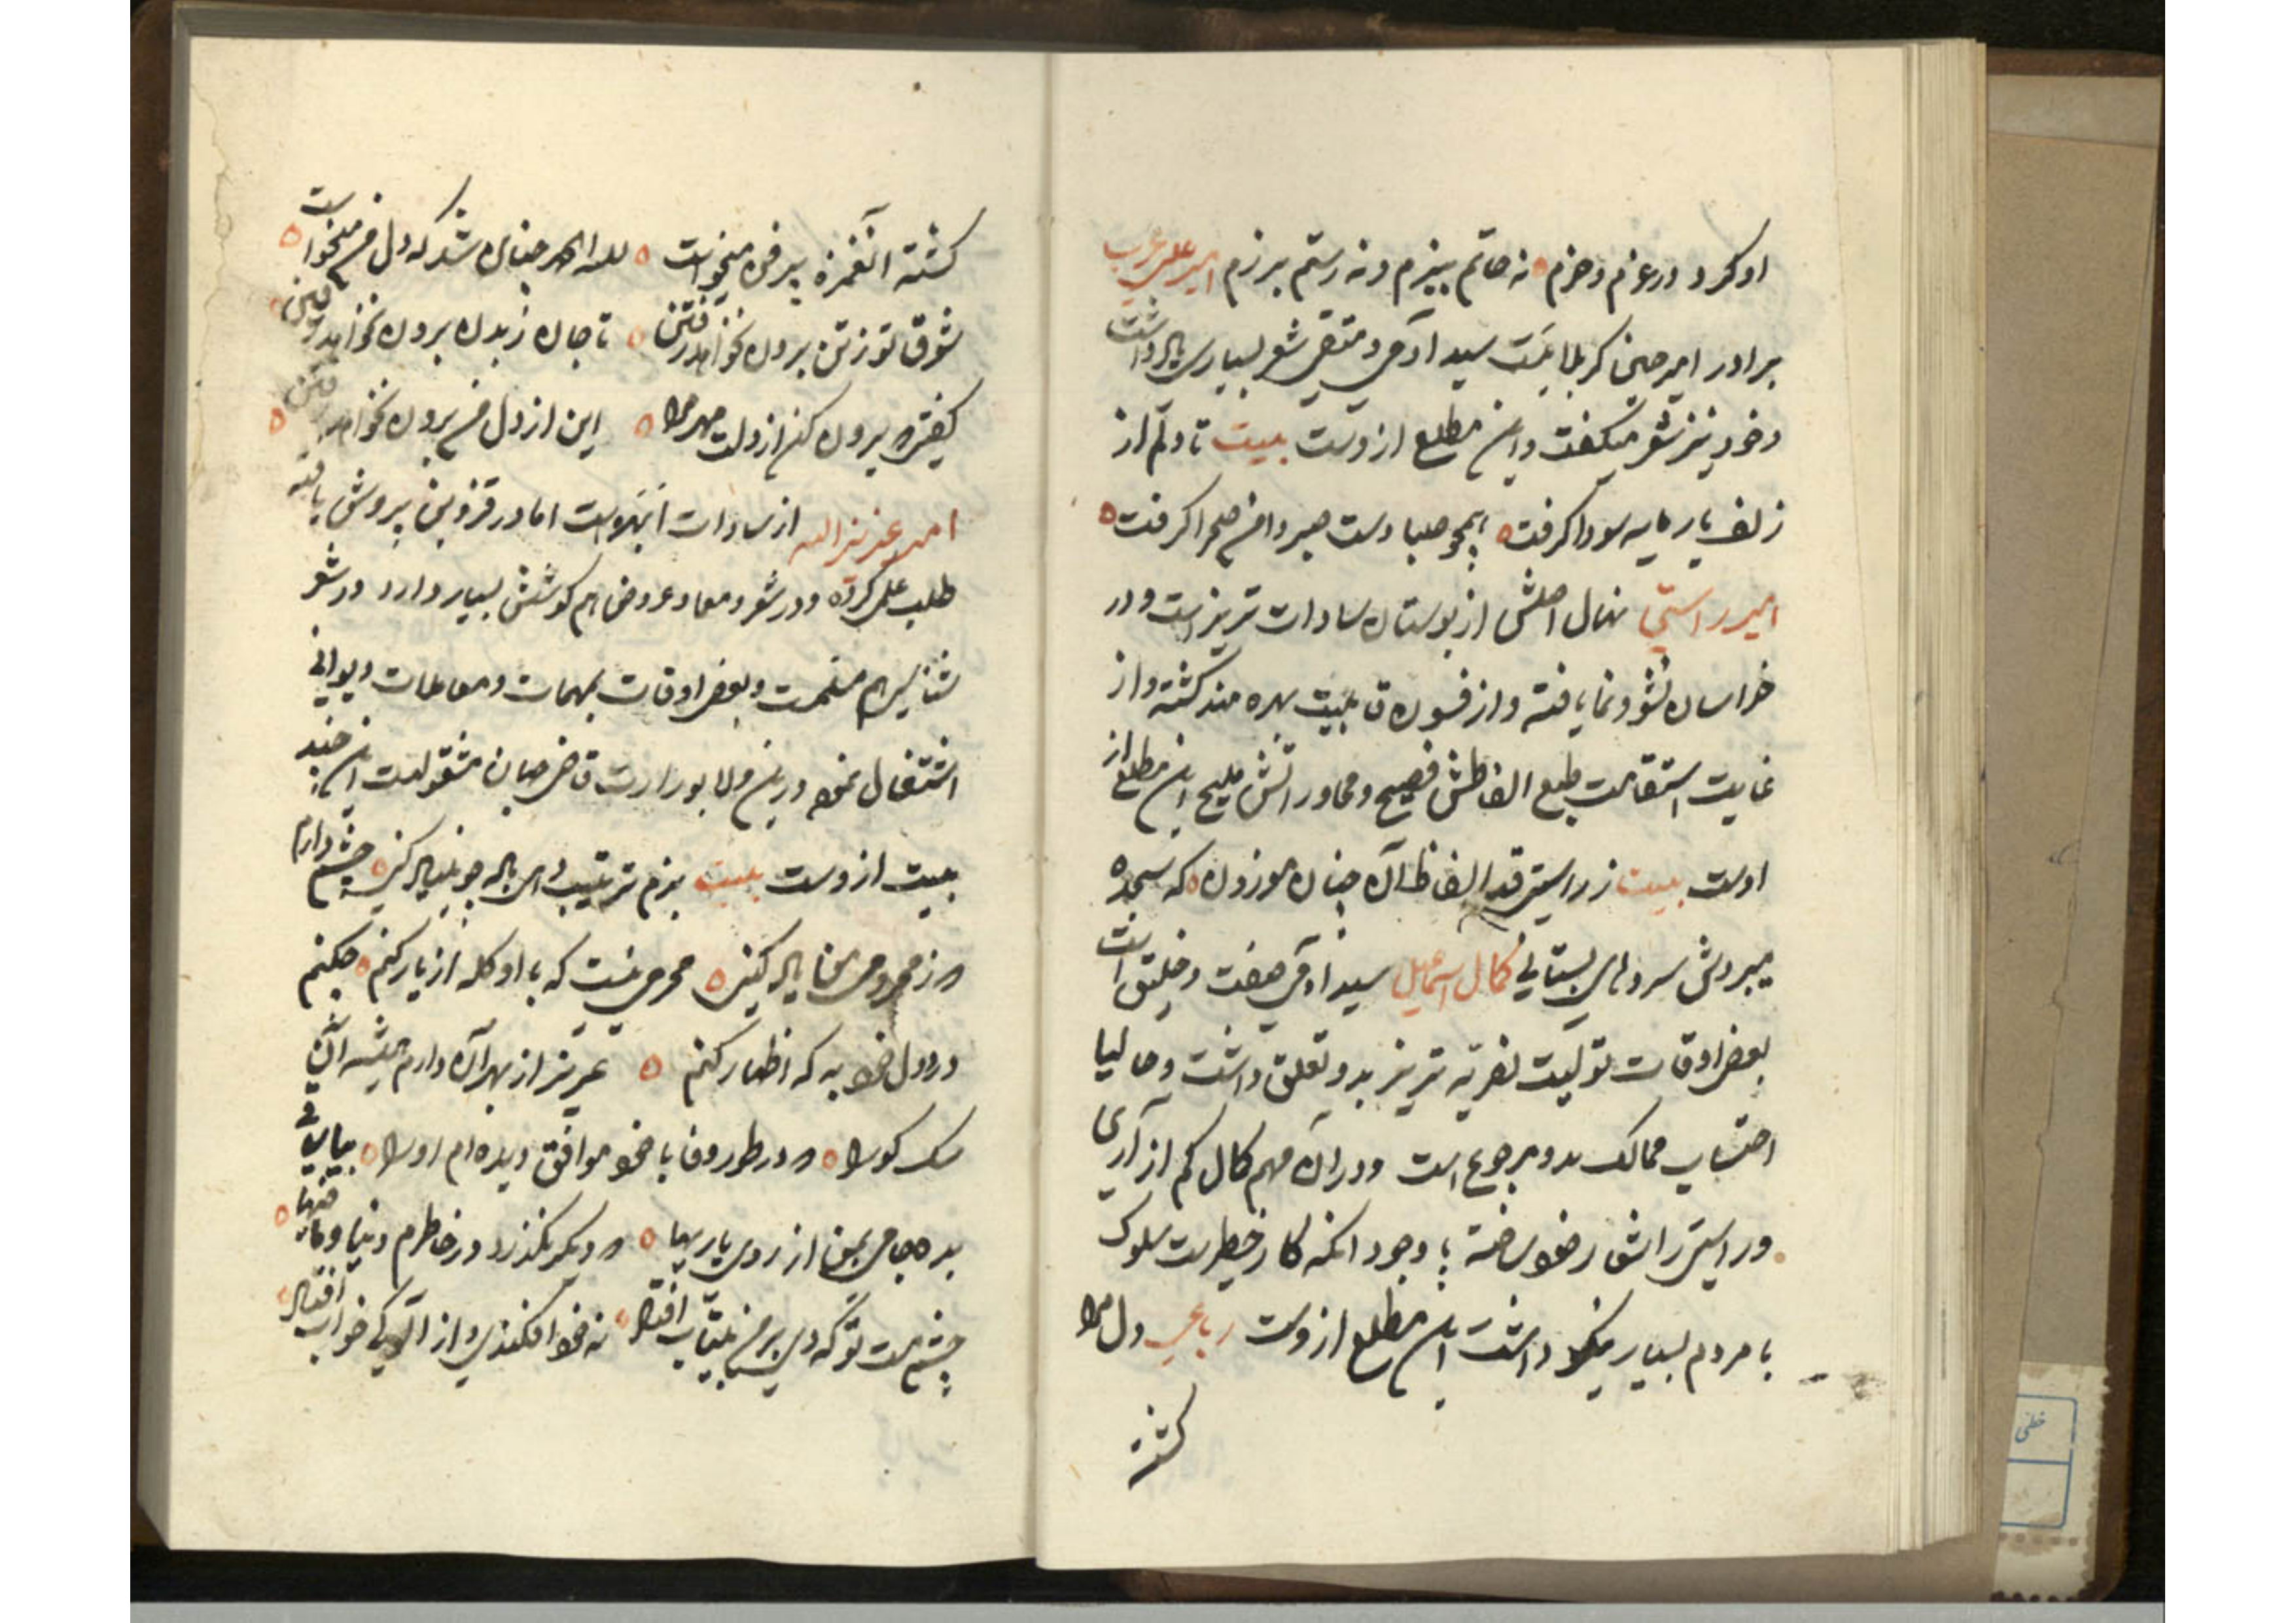 او کرد در عزم و حزم ه نه حاتم ببزم و نه رستم برزم امیر علی عرب
برادر امیر حسن کربلا ست سید آدمی و متقی شعر بسیاری یاد داشت
و خود نیز شعر میگفت و این مطلع از وست بیت تا دلم از
زلف یار مایه سودا گرفت ه همچو صبا دست صبر دامن صحرا گرفت ه
امیر راستی نهال اصلش از بوستان سادات تبریز است و در
خراسان نشو و نما یافته و از فنون قابلیت بهره مند گشته و از
غایت استقامت طبع الفاظش فصیح و محاوراتش ملیح این مطلع از
اوست بیت ز راستی قد الفاظ آن چنان موزون ه که سجده
میبردش سروهای بستانی کمال اسماعیل سید آدمی صفت و خلیق است
بعض اوقات تولیت نصریه تبریز بدو تعلق داشت و حالیا
احتساب ممالک بدو مرجوع است و در آن مهم کمال کم آزاری
و راستی را شعار خود ساخته با وجود آنکه کار خطیرست سلوک
با مردم بسیار نیکو داشت این مطلع از وست رباعی دل مرا
کشته
کشته آن غمزه پر فن میخواست ه لله الحمد چنان شد که دل من میخواست ه
شوق تو ز تن برون نخواهد رفتن ه تا جان ز بدن برون نخواهد رفتن
گفتی که برون کن از دلت مهر مرا ه این از دل من برون نخواهد رفتن ه
امیر عزیز الله از سادات ابهر است اما در قزوین پرورش یافته
طلب علمی کرده و در شعر و معما و عروض هم کوشش بسیار دارد و در شعر
شناسی هم و بعض اوقات بمهمات و معاملات دیوانی
اشتغال نموده درین ولا بوزارت قاضی جهان مشغولست این چند
بیت از وست بیت بزم ترتیب دهی یاد چو یاد کنی ه چشم دارم
که ز محرومی ما یاد کنی ه محرمی نیست که با او گله از یار کنم ه چکنم
درد دل خود به که اظهار کنم ه عزیز از بهر آن دارم همیشه این
سگ کو را ه که در طور وفا با خود موافق دیده ام او را ه بیا ساقی
بده جامی بمن از روی یاریها ه که دیگر نگذرد در خاطرم دنیا و مافیها ه
چشم مست تو گه دی بر من بیتاب افتاد ه نه خود افکندی و از آلودگی خواب افتاد ه
خطی